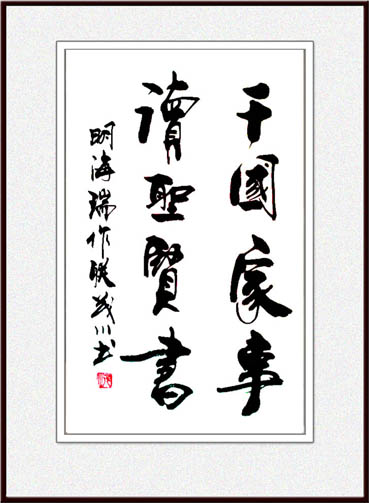 干國家事
讀聖賢書
明海瑞作联茂川书